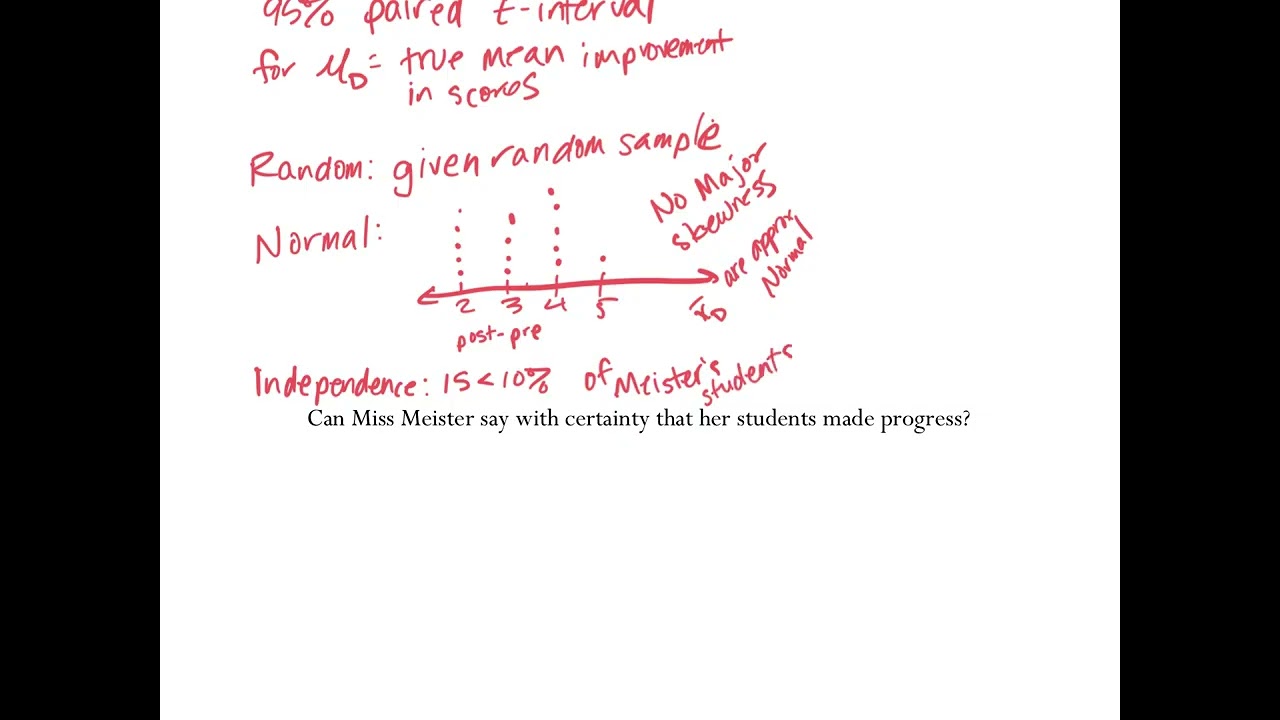 95% paired t-interval
for μD = true mean improvement
in scores
Random: given random sample
No Major
skewness
Normal:
are approx.
Normal
2 3 4 5
x̄D
post-pre
Independence: 15 < 10% of Meister's
students
Can Miss Meister say with certainty that her students made progress?